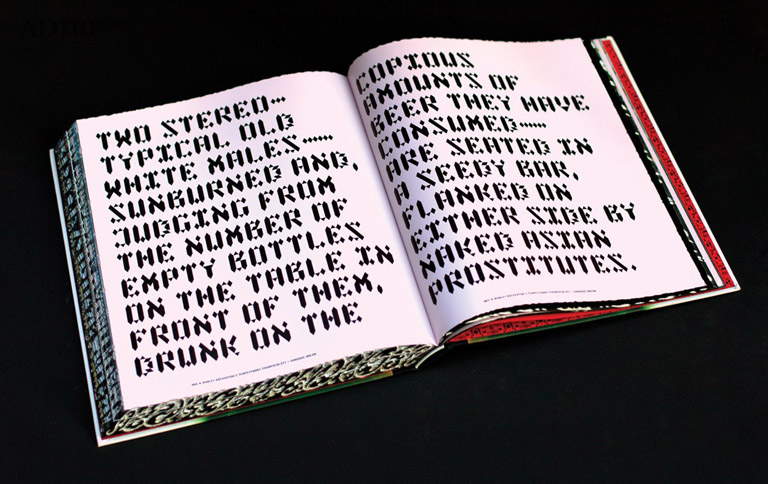 TWO STEREO-
TYPICAL OLD
WHITE MALES.....
SUNBURNED AND,
JUDGING FROM
THE NUMBER OF
EMPTY BOTTLES
ON THE TABLE IN
FRONT OF THEM,
DRUNK ON THE
COPIOUS
AMOUNTS OF
BEER THEY HAVE
CONSUMED.....
ARE SEATED IN
A SEEDY BAR,
FLANKED ON
EITHER SIDE BY
NAKED ASIAN
PROSTITUTES.